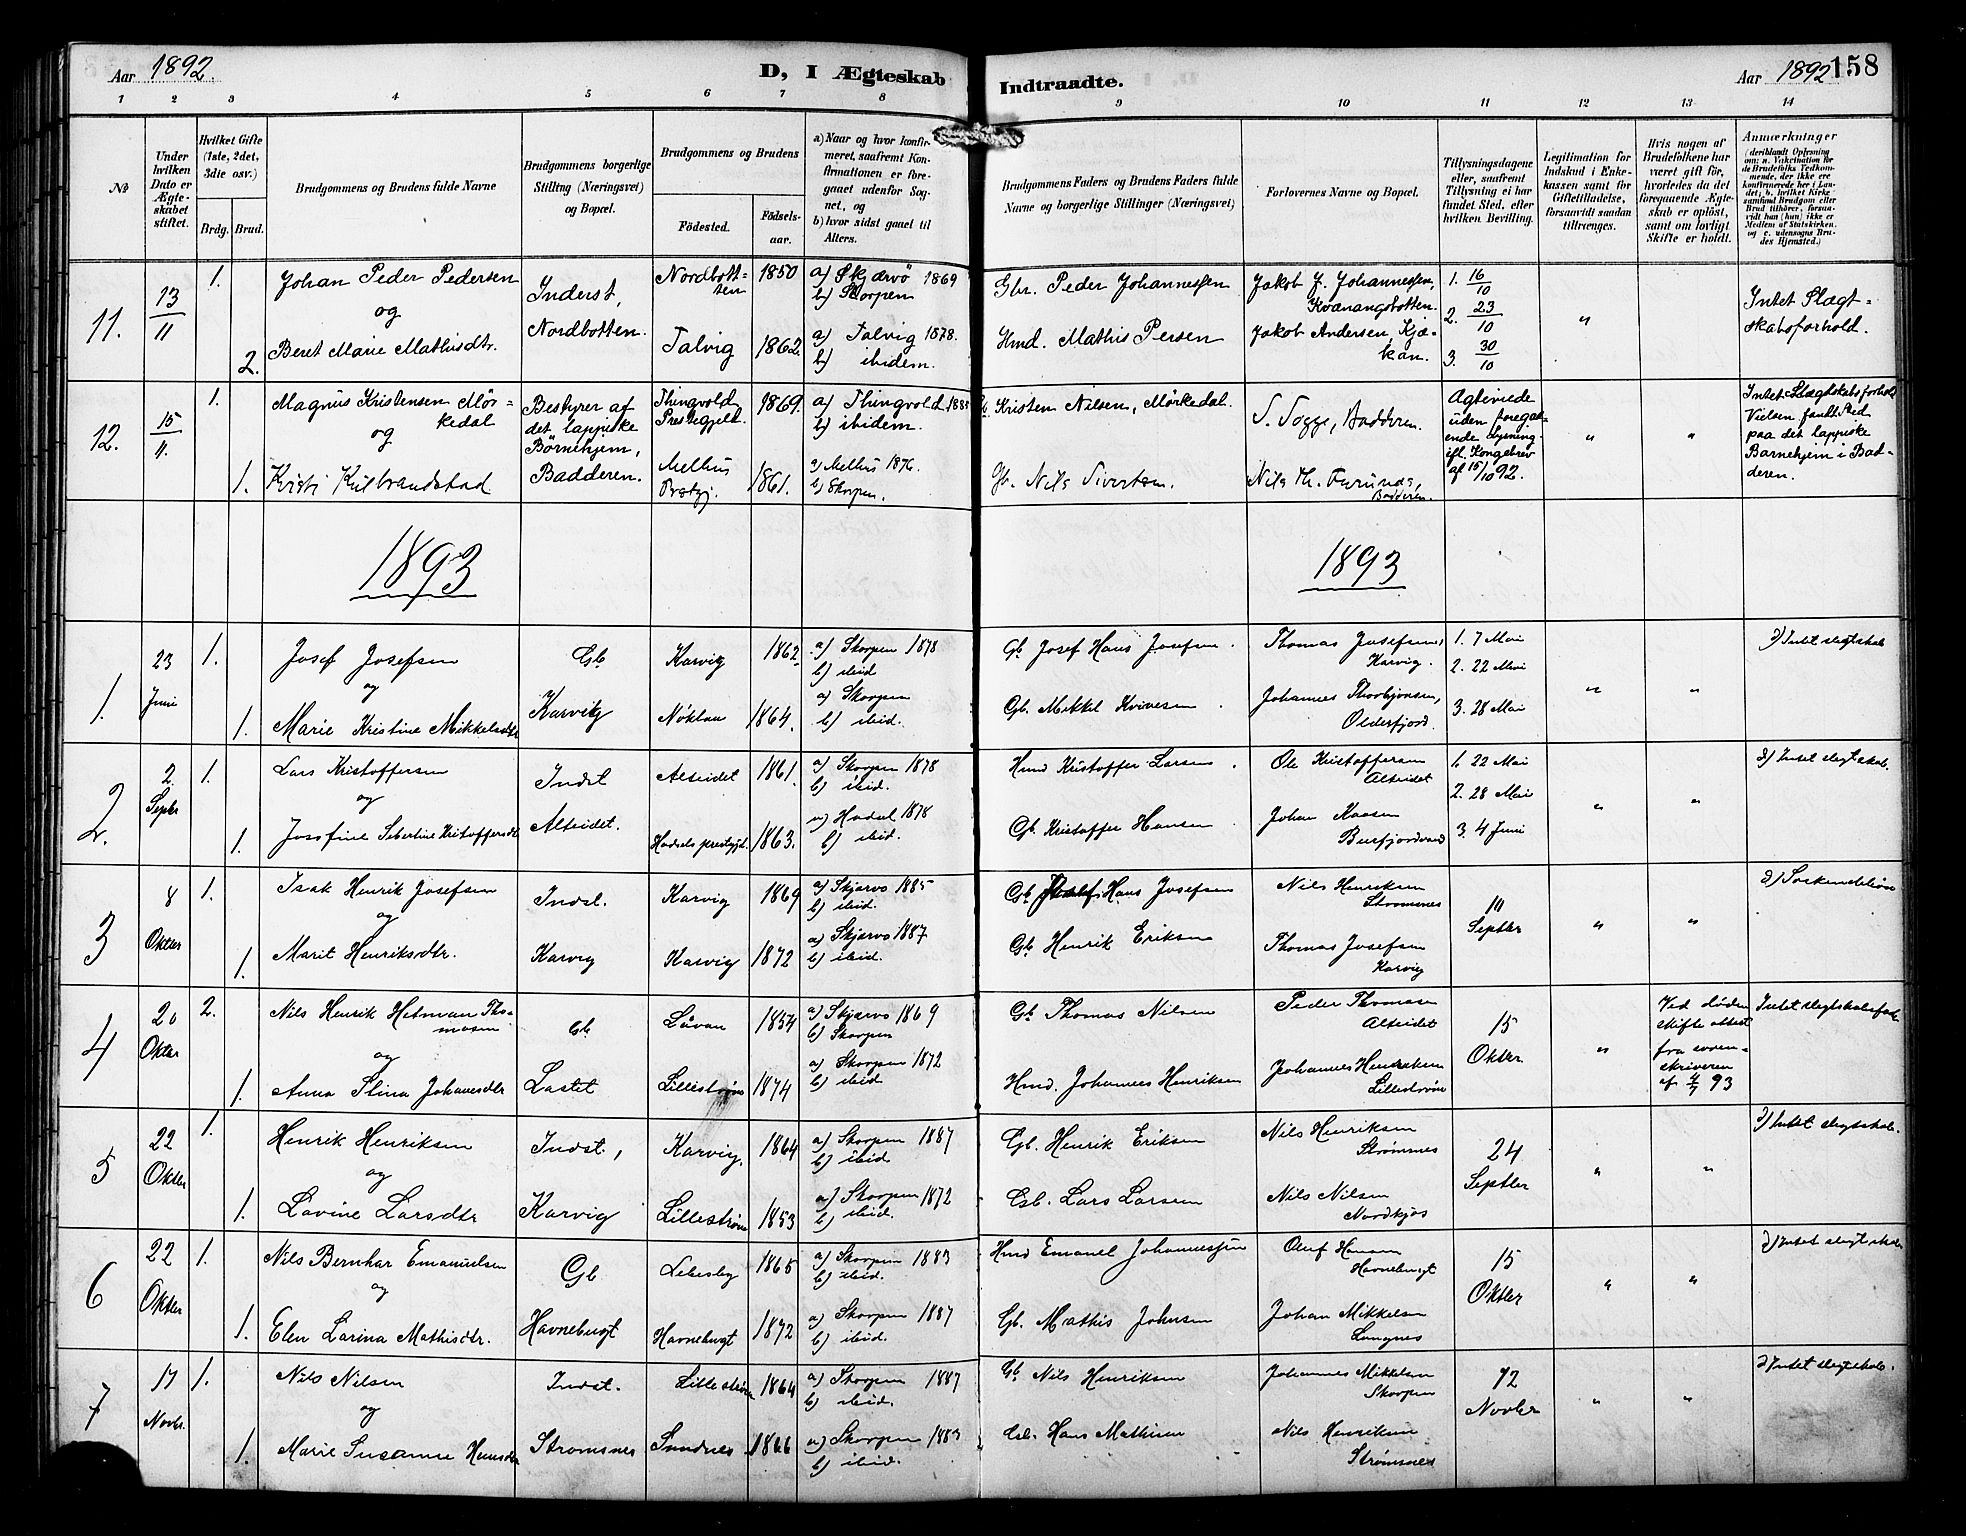 Aar 1892.
D, I Ægteskab
Indtraadte.
Aar 1892
158
1 2 3 4 5 6 7 8 9 10 11 12 13 14
№
Under hvilken Dato er Ægteskabet stiftet.
Hvilket Gifte (1ste, 2det, 3die osv.)
Brdg. Brud.
Brudgommens og Brudens fulde Navne
Brudgommens borgerlige Stilling (Næringsvei) og Bopæl.
Brudgommens og Brudens
Fødested.
Fødselsaar.
a) Naar og hvor konfirmeret, saafremt Konfirmationen er foregaaet udenfor Sognet, og
b) hvor sidst gaaet til Alters.
Brudgommens Faders og Brudens Faders fulde Navne og borgerlige Stillinger (Næringsvei)
Forlovernes Navne og Bopæl.
Tillysningsdagene eller, saafremt Tillysning ei har fundet Sted, efter hvilken Bevilling.
Legitimation for Indskud i Enkekassen samt for Giftetilladelse, forsaavidt saadan tiltrænges.
Hvis nogen af Brudefolkene har været gift før, hvorledes da det foregaaende Ægteskab er opløst, samt om lovligt Skifte er holdt.
Anmærkninger
(deriblandt Oplysning om: a. Vakcination for de Brudefolks Vedkommende, der ikke ere konfirmerede her i Landet; b. hvilket Kirkesamfund Brudgom eller Brud tilhører, forsaavidt han (hun) ikke er Medlem af Statskirken, og c. udensogns Brudes Hjemsted.)
11.
13/11
1.
Johan Peder Pedersen
og
2. Beret Marie Mathisdtr.
Inderst,
Nordbotten.
Nordbotten 1850
Talvig 1862.
a) Skjærvö 1869
b) Skorpen
a) Talvig 1878.
b) ibidem.
Gbr. Peder Johannessen
Hmd. Mathis Persen
Jakob J. Johannessen,
Kvænangsbotten.
Jakob Andersen, Kjækan.
1. 16/10
2. 23/10
3. 30/10
"
Intet Slægtskabsforhold.
12.
15/11.
1.
Magnus Kristensen Mörkedal
og
1. Kristi Kulbrandstad
Bestyrer af
det lappiske
Börnehjem,
Badderen.
Thingvold
Prestegjeld. 1869.
Melhus
Prstgj. 1861.
a) Thingvold 1885
b) ibidem.
a) Melhus 1876.
b) Skorpen.
Gb. Kristen Nilsen, Mörkedal.
Gb. Nils Sivertsen.
S. Sogge, Badderen.
Nils Th. Furunes,
Badderen.
Agteviede
uden foregaaende Lysning
ifl. Kongebrev
af 15/10 92.
" "
Intet Slægtskabsforhold
Vielsen fandt Sted
paa det lappiske
Barnehjem i Badderen.
1893
1893
1.
23 Juni
1.
Josef Josefsen
og
1. Marie Kristine Mikkelsdtr
Gb
Karvig
Karvig 1862
Nøklan 1864.
a) Skorpen 1878
b) ibid
a) Skorpen
b) ibid.
Gb. Josef Hans Josefsen.
Gb. Mikkel Kvivesen.
Thomas Josefsen,
Karvig.
Johannes Thorbjørnsen,
Olderfjord.
1. 7 Mai
2. 22 Mai
3. 28 Mai
" "
d) Intet slegtskab
2.
2. Septbr
1.
Lars Kristoffersen
og
1. Josefine Sebertine Kristoffersdtr
Indst
Alteidet.
Alteidet 1861.
Hadsels prestgjt. 1863.
a) Skorpen 1878
b) ibid.
a) Hadsel 1878
b) ibid.
Hmd Kristoffer Larsen.
Gb. Kristoffer Hansen.
Ole Kristoffersen
Alteidet
Johan Kaasen
Burfjordvand
1. 22 Mai
2. 28 Mai
3. 4 Juni
" "
d) Intet slegtskab.
3
8 Oktbr
1.
Isak Henrik Josefsen
og
1. Marit Henriksdtr.
Indst.
Karvig
Karvig 1869
Karvig 1872
a) Skjærvö 1885
b) ibid.
a) Skjærvö 1887
b) ibid.
Gb Hans Josefsen
Gb Henrik Eriksen
Nils Henriksen
Strømsnes
Thomas Josefsen
Karvig
10
Septbr
" "
d) Søskendebörn
4
20 Oktbr
2.
Nils Henrik Hetman Thomassen
og
1. Anna Stina Johannesdtr
Gb
Lastet
Låvan 1854
Lillestrøm 1874
a) Skjærvö 1869
b) Skorpen
a) Skorpen 1872
b) ibid.
Gb Thomas Nilsen
Hmd. Johannes Henriksen
Peder Thomasen
Alteidet
Johannes Henriksen
Lillestrøm
15
Oktbr
"
Ved døden
skifte attest
fra sorenskriveren
af 4/7 93
Intet slegtskabsforh.
5
22 Oktbr
1.
Henrik Henriksen
og
1. Lovine Larsdtr
Indst,
Karvig
Karvig. 1864
Lillestrøm 1853
a) Skorpen 1887
b) ibid
a) Skorpen 1872
b) ibid.
Gb. Henrik Eriksen
Gb. Lars Larsen
Nils Henriksen
Strømsnes
Nils Nilsen
Nordkjos
24
Septbr
" "
d) Intet slegtskab.
6
22 Oktbr
1.
Nils Bernhar Emanuelsen
og
1. Elen Larina Mathisdtr.
Gb
Havnebugt
Lebesby 1865
Havnebugt 1872
a) Skorpen 1883
b) ibid.
a) Skorpen 1887
b) ibid.
Hmd Emanel Johannessen
Gb. Mathis Johnsen
Oluf Hansen
Havnebugt
Johan Mikkelsen
Langnes
15
Oktbr
" "
d) Intet slegtskab
7
17 Novbr.
1.
Nils Nilsen
og
1. Marie Susanne Hansdtr
Indst.
Strømsnes
Lillestrøm 1864
Sandnes 1866
a) Skorpen 1887
b) ibid.
a) Skorpen 1883
b) ibid.
Gb Nils Henriksen
Gb. Hans Mathisen
Johannes Mikkelsen
Skorpen
Nils Henriksen
Strømsnes
12
Novbr
" "
d) Intet slegtskab.